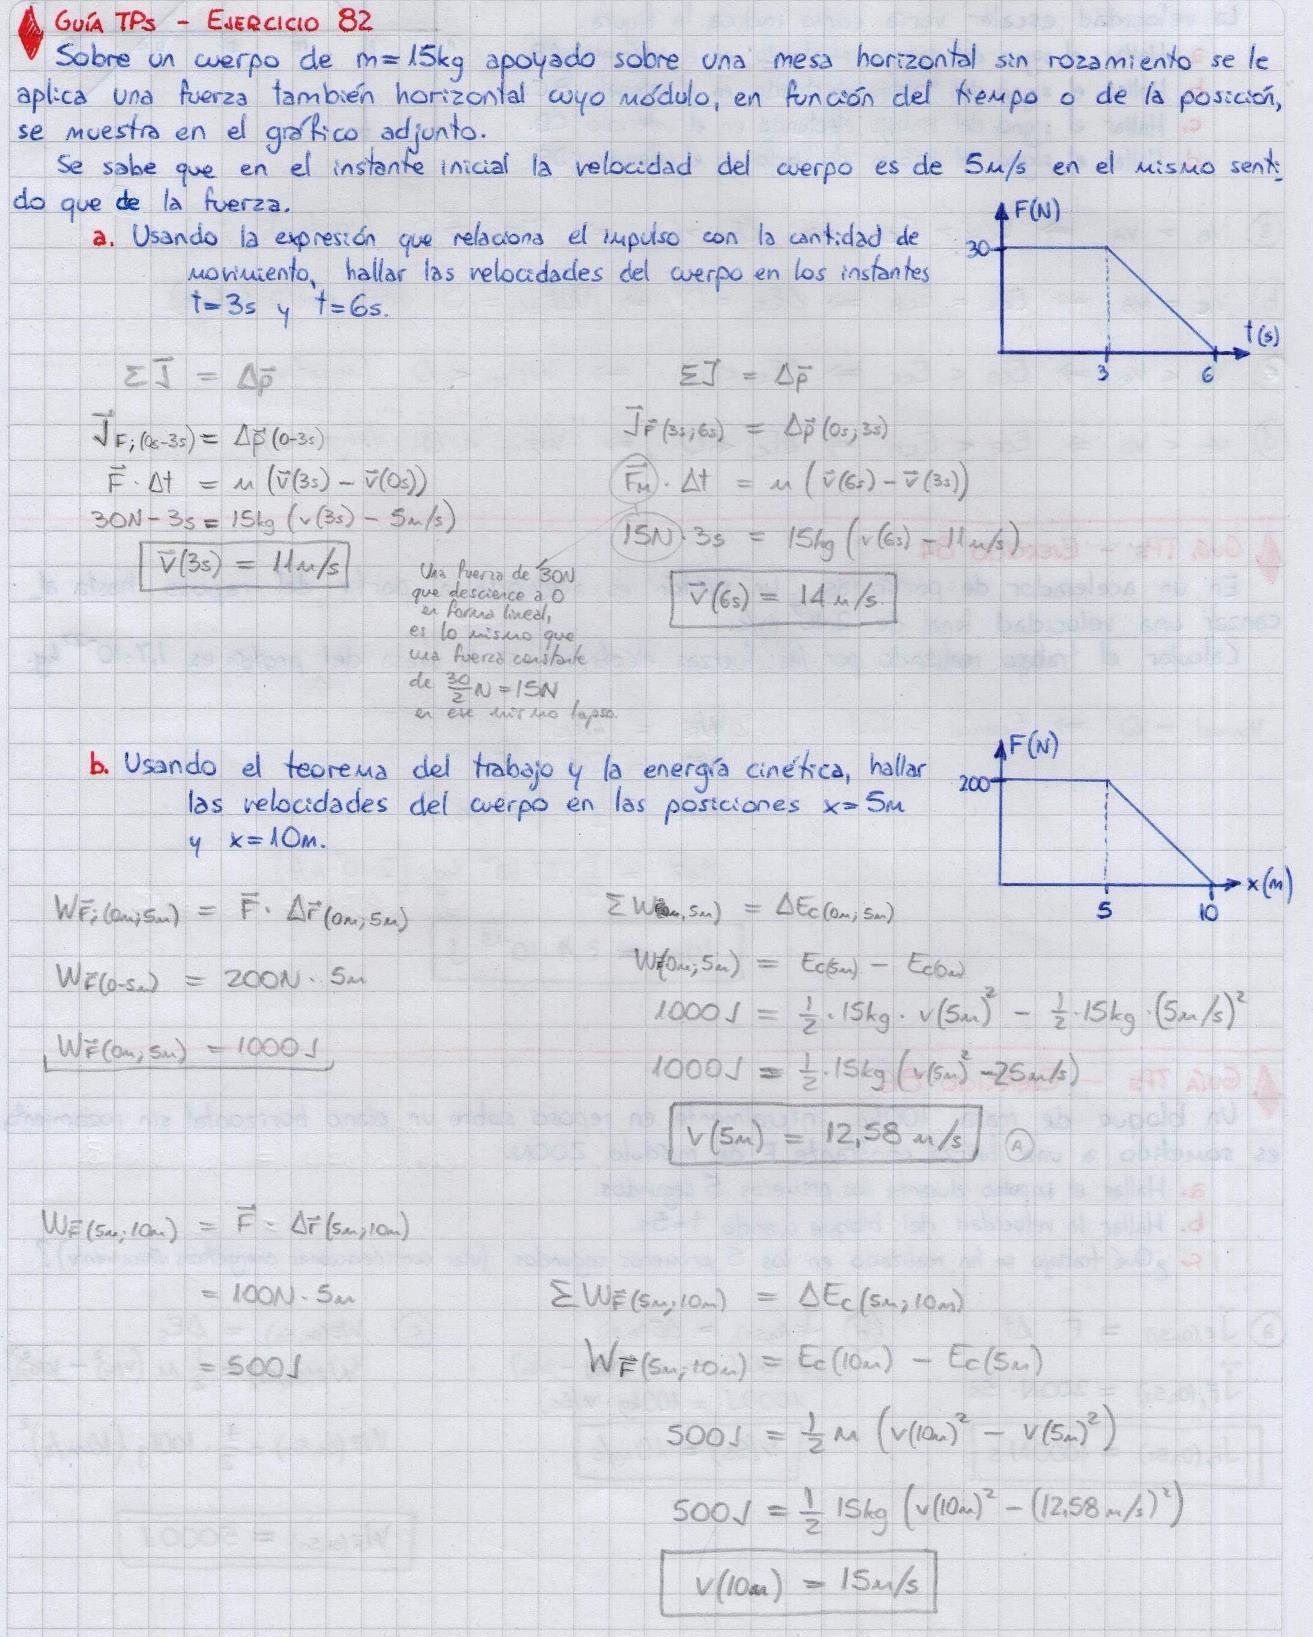 GUÍA TPs - EJERCICIO 82
Sobre un cuerpo de m=15kg apoyado sobre una mesa horizontal sin rozamiento se le
aplica una fuerza también horizontal cuyo módulo, en función del tiempo o de la posición,
se muestra en el gráfico adjunto.
Se sabe que en el instante inicial la velocidad del cuerpo es de 5m/s en el mismo senti
do que de la fuerza.
a. Usando la expresión que relaciona el impulso con la cantidad de
movimiento, hallar las velocidades del cuerpo en los instantes
t=3s y t=6s.
F(N)
30
t(s)
3 6
ΣJ⃗ = Δp⃗
J⃗F;(0s-3s) = Δp⃗(0-3s)
F⃗ · Δt = m (v⃗(3s) - v⃗(0s))
30N - 3s = 15kg (v(3s) - 5m/s)
v⃗(3s) = 11m/s
ΣJ⃗ = Δp⃗
J⃗F⃗(3s;6s) = Δp⃗(0s;3s)
F⃗M · Δt = m (v⃗(6s) - v⃗(3s))
15N · 3s = 15kg (v(6s) - 11m/s)
v⃗(6s) = 14m/s.
Una fuerza de 30N
que desciende a 0
en forma lineal,
es lo mismo que
una fuerza constante
de 30/2 N = 15N
en ese mismo lapso.
b. Usando el teorema del trabajo y la energía cinética, hallar
las velocidades del cuerpo en las posiciones x=5m
y x=10m.
F(N)
200
x(m)
5 10
WF⃗;(0m;5m) = F⃗ · Δr⃗(0m;5m)
WF⃗(0-5m) = 200N · 5m
WF⃗(0m;5m) = 1000J
ΣW(0m,5m) = ΔEc(0m;5m)
WF⃗(0m;5m) = Ec(5m) - Ec(0m)
1000J = 1/2 · 15kg · v(5m)² - 1/2 · 15kg · (5m/s)²
1000J = 1/2 · 15kg (v(5m)² - 25m/s)
v(5m) = 12,58 m/s A
WF⃗(5m;10m) = F⃗ · Δr⃗(5m;10m)
= 100N · 5m
= 500J
ΣWF⃗(5m;10m) = ΔEc(5m;10m)
WF⃗(5m;10m) = Ec(10m) - Ec(5m)
500J = 1/2 m (v(10m)² - v(5m)²)
500J = 1/2 15kg (v(10m)² - (12,58m/s)²)
v(10m) = 15m/s